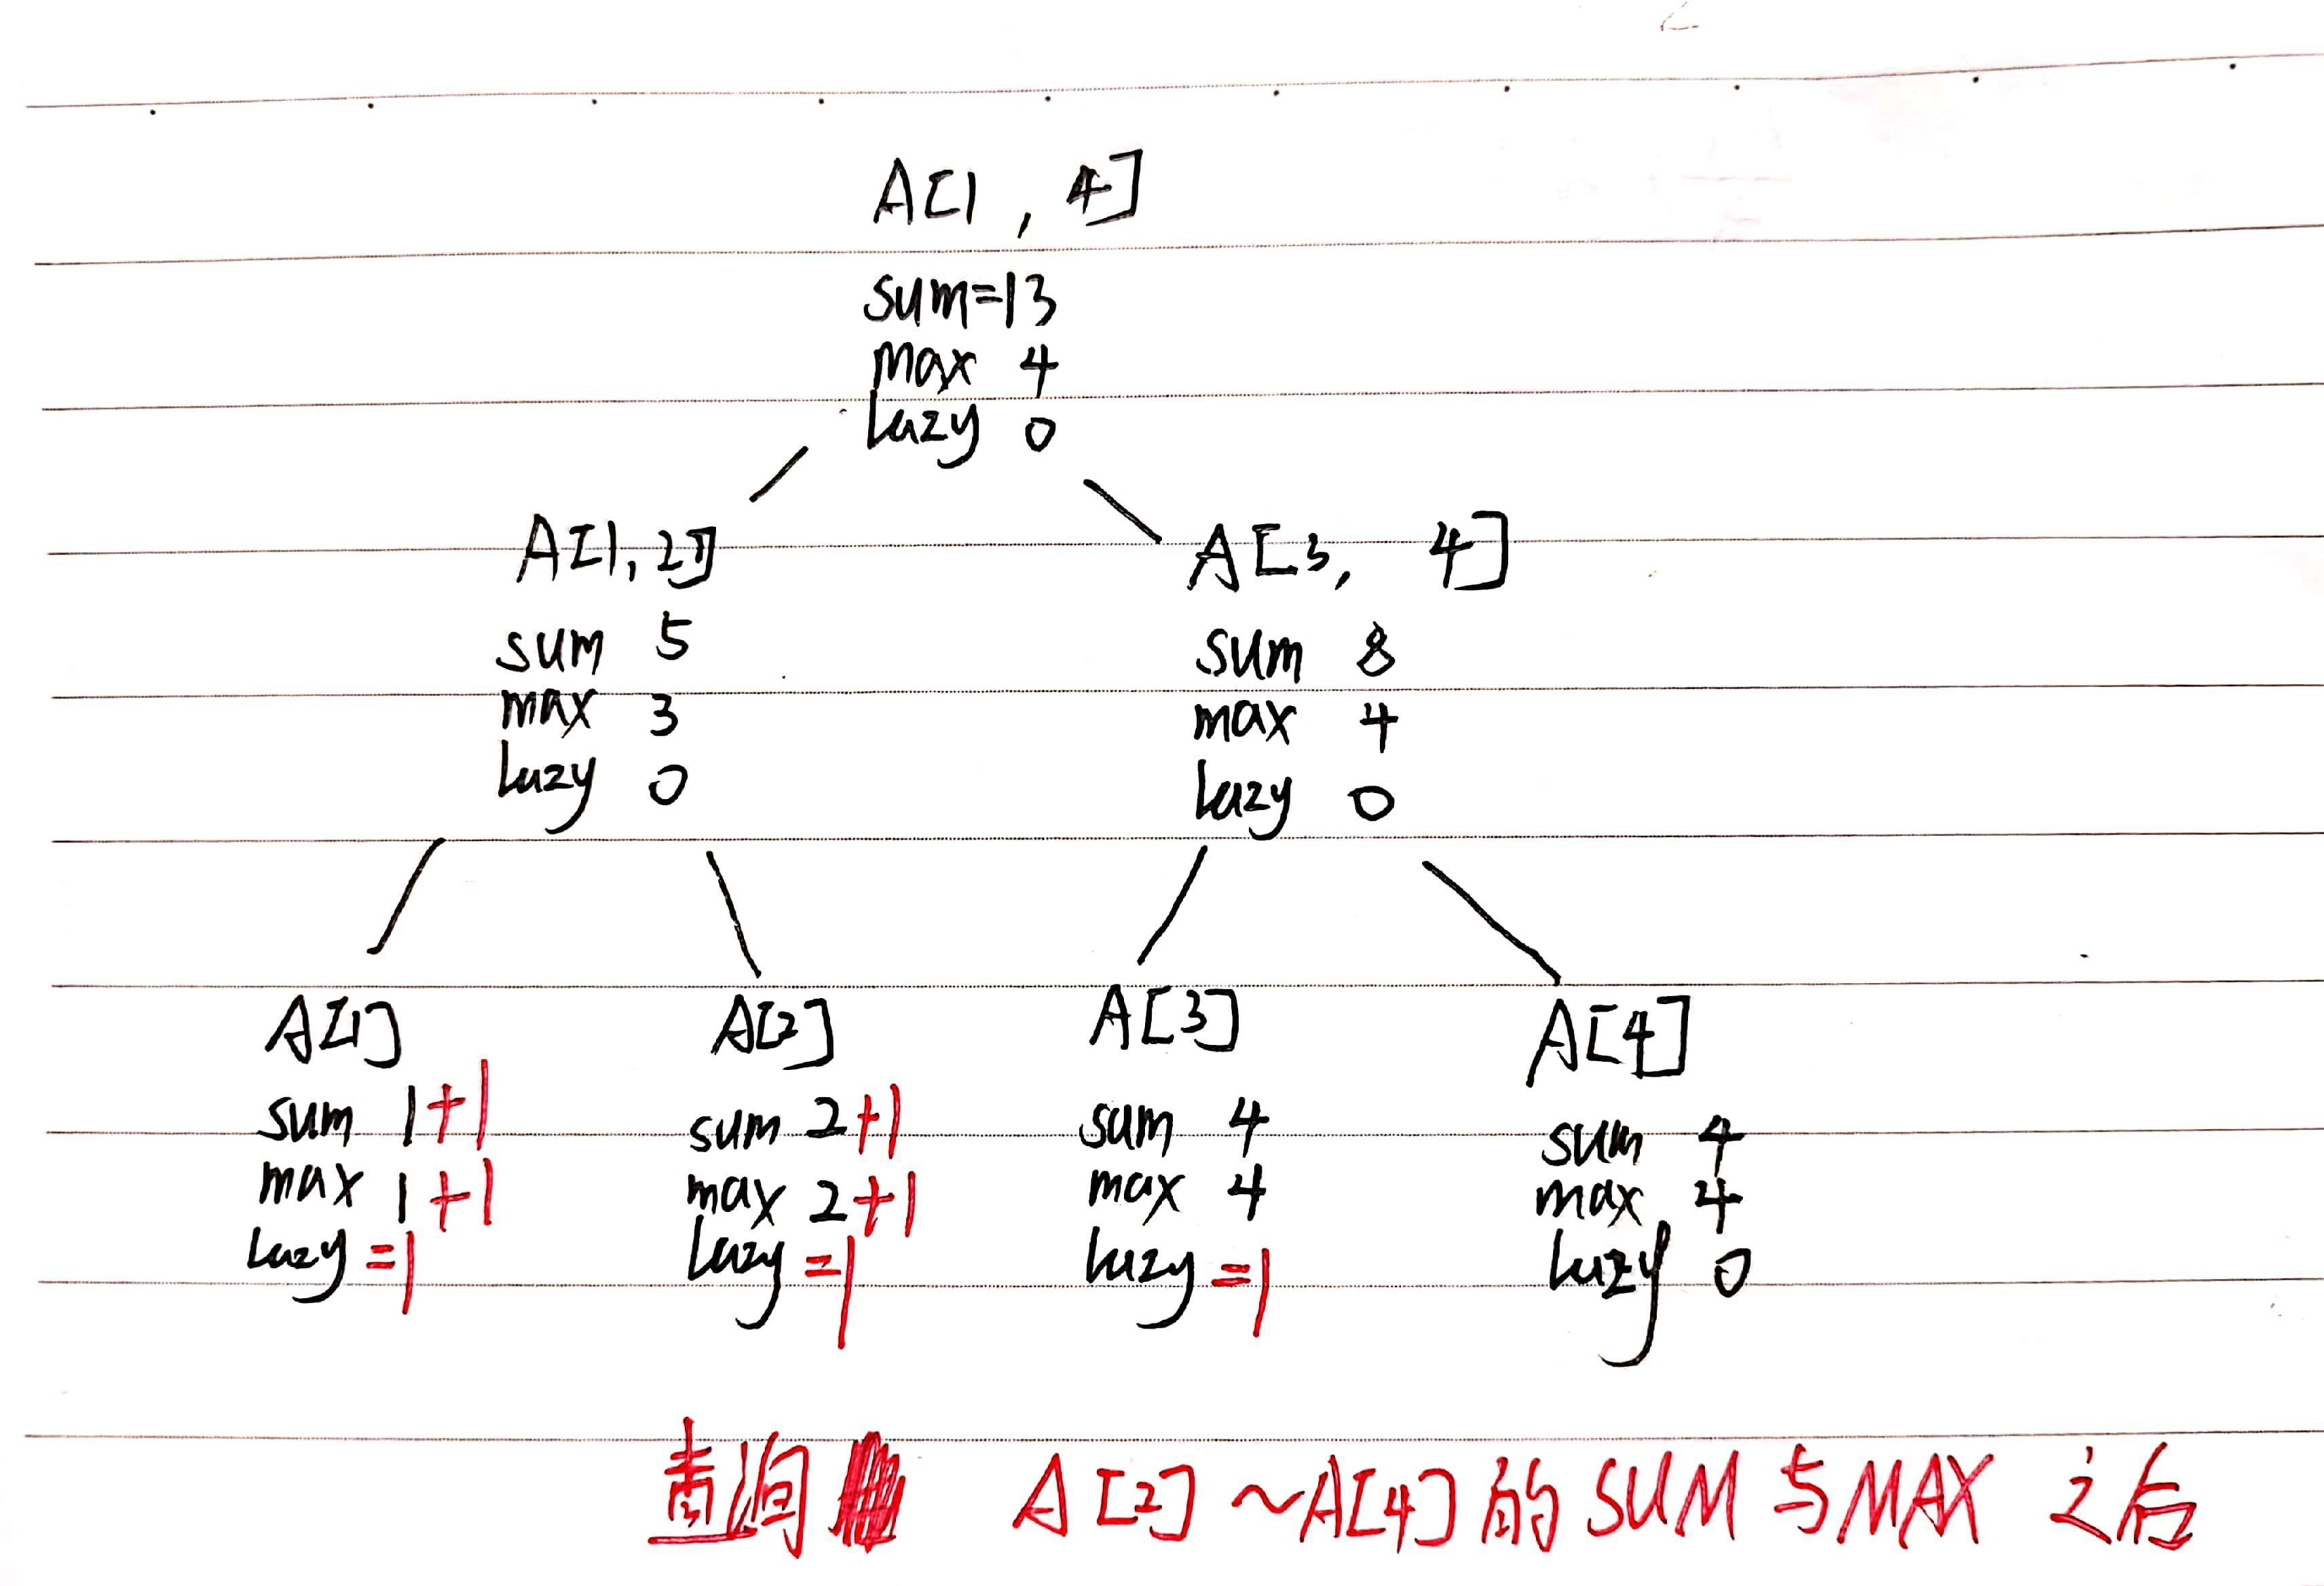 A[1, 4]
sum=13
max 4
lazy 0
A[1,2]
sum 5
max 3
lazy 0
A[3, 4]
sum 8
max 4
lazy 0
A[1]
sum 1+1
max 1+1
lazy=1
A[2]
sum 2+1
max 2+1
lazy=1
A[3]
sum 4
max 4
lazy=1
A[4]
sum 4
max 4
lazy 0
查询 A[2]~A[4]的SUM与MAX之后